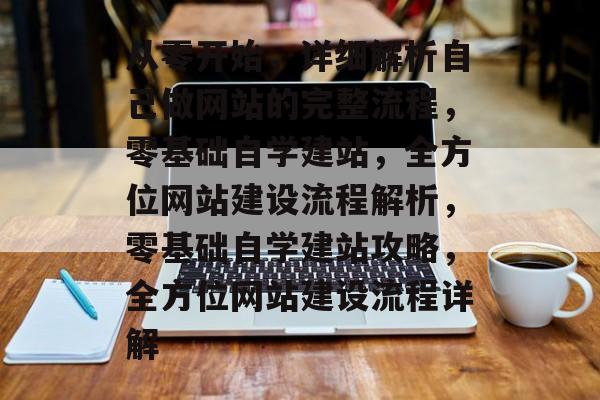 从零开始，详细解析自
己做网站的完整流程，
零基础自学建站，全方
位网站建设流程解析，
零基础自学建站攻略，
全方位网站建设流程详
解